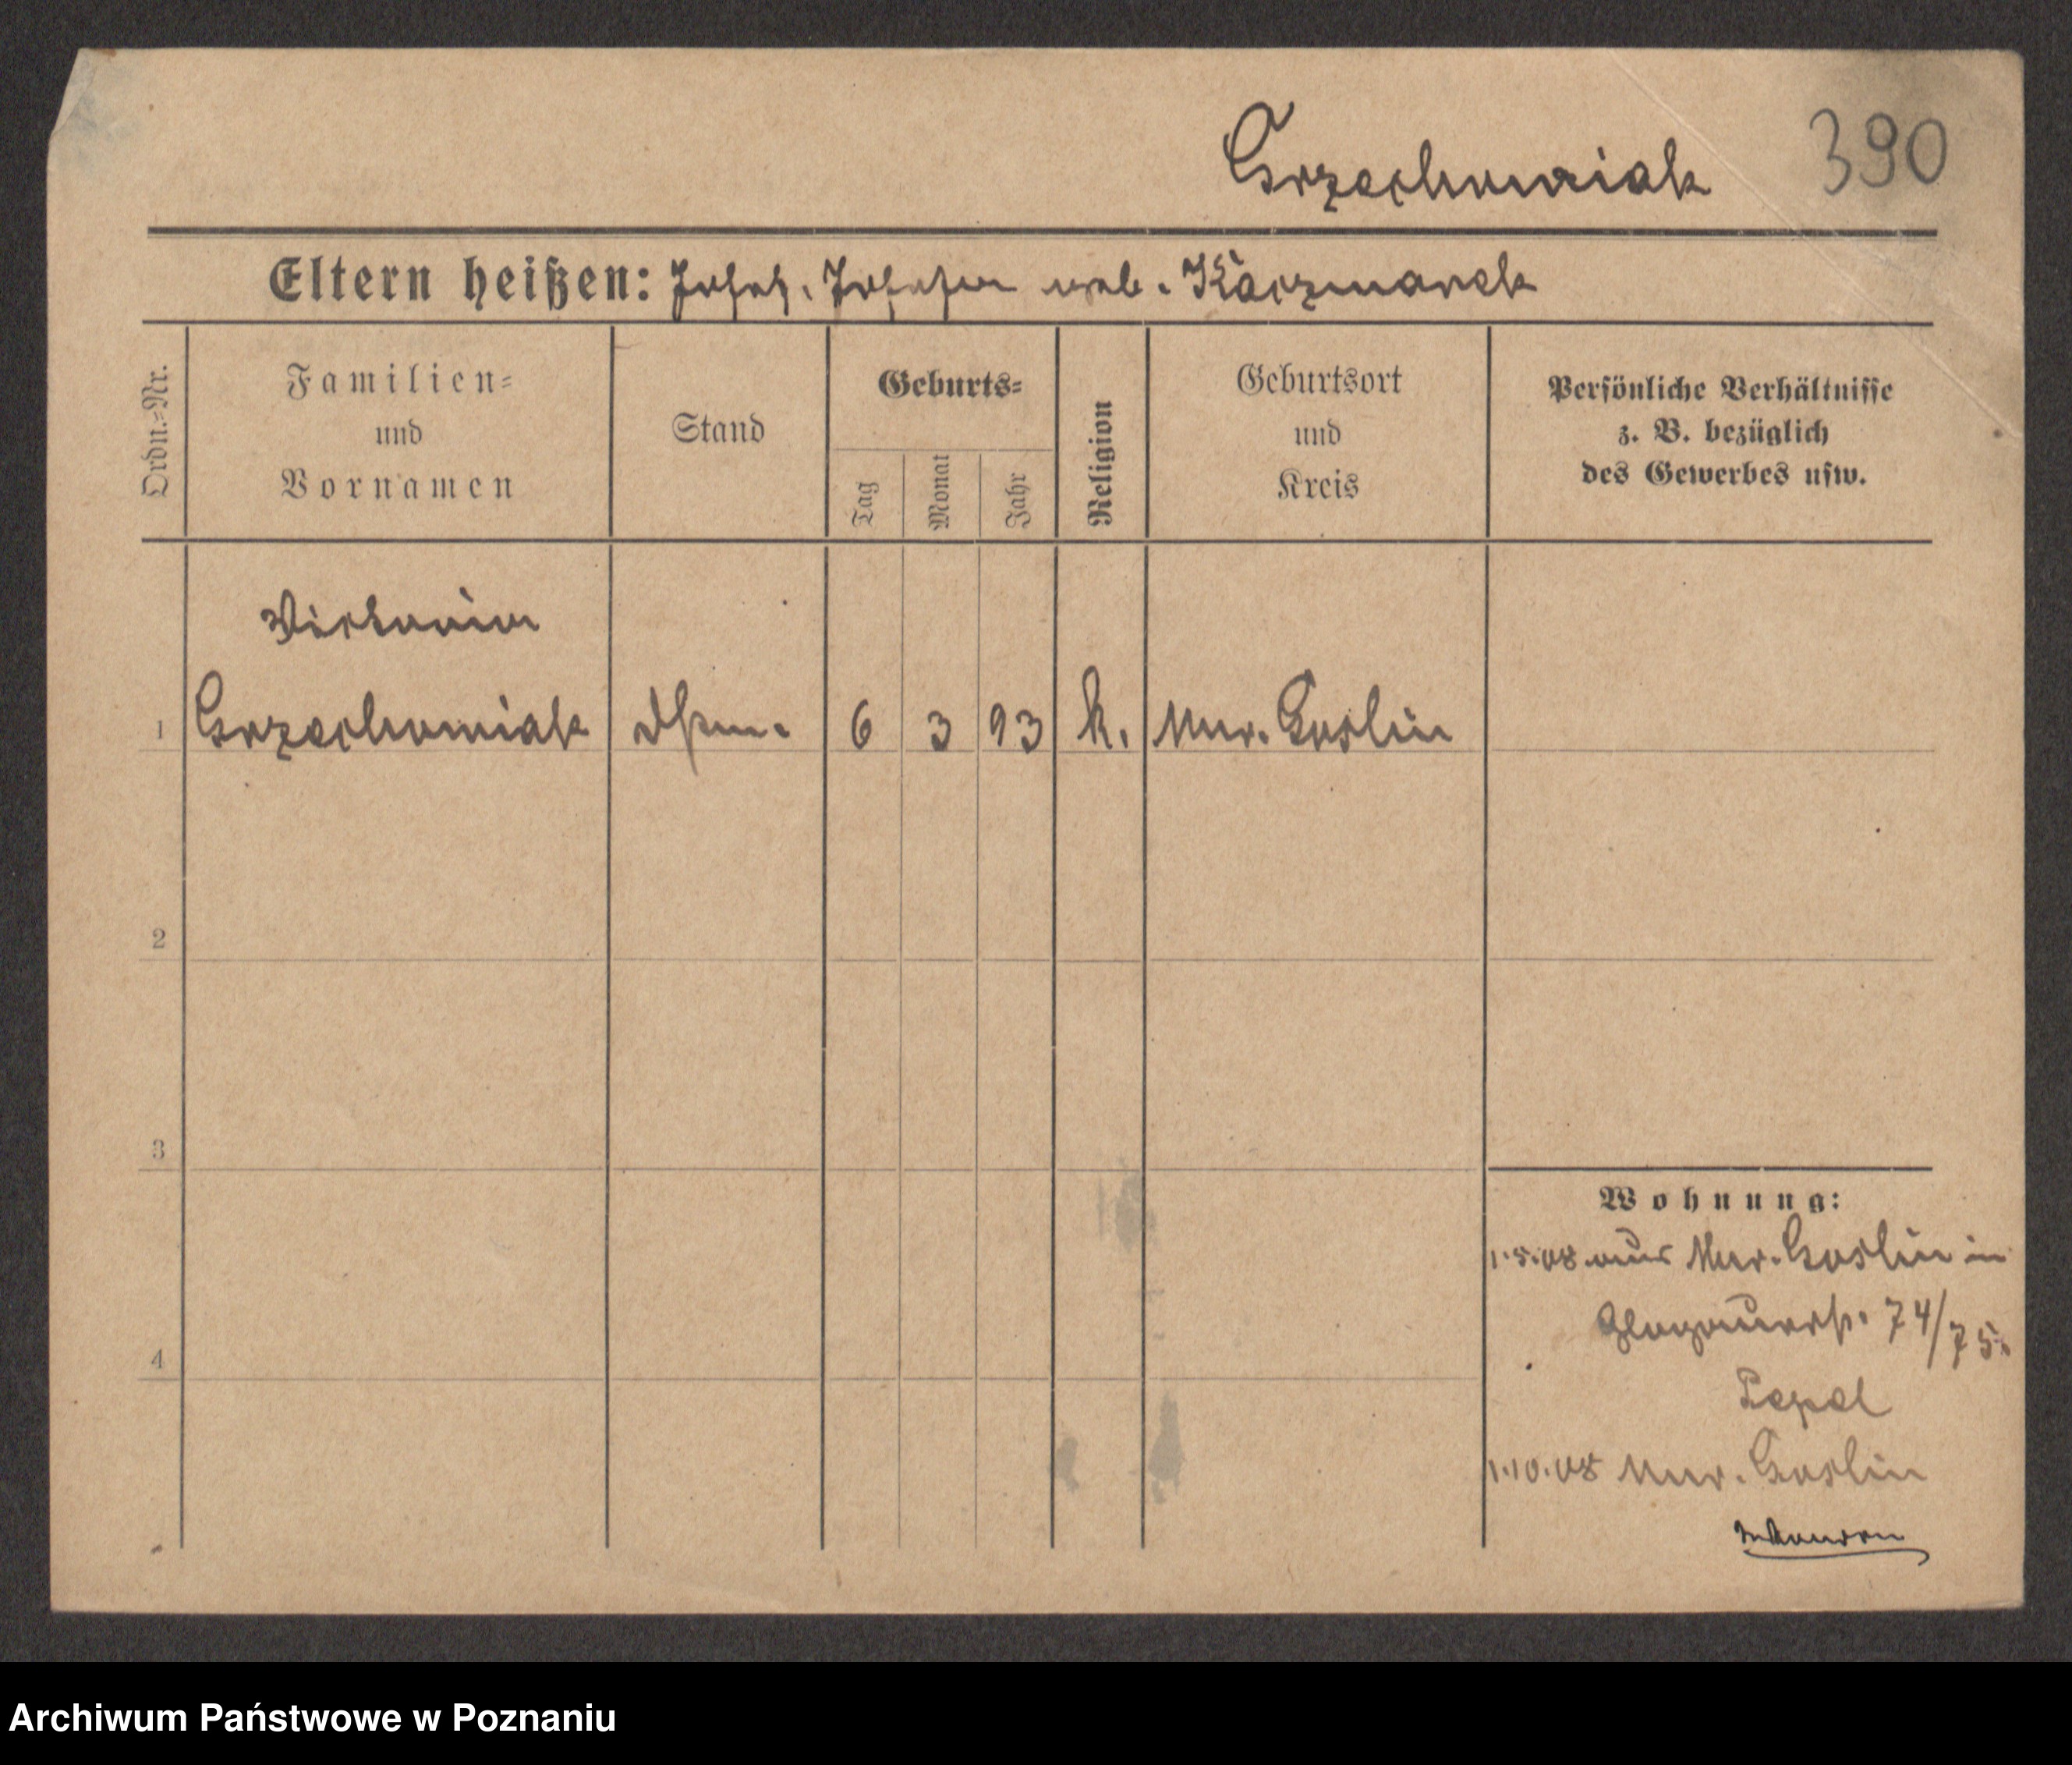 Grzechowiak 390
Eltern heißen: Josef, Josefa geb. Kaczmarek
Ordn.=Nr.
Familien=
und
Vornamen
Stand
Geburts=
Tag
Monat
Jahr
Religion
Geburtsort
und
Kreis
Persönliche Verhältnisse
z. B. bezüglich
des Gewerbes usw.
Victoria
1 Grzechowiak 6 3 93 k. Mur. Goslin
2
3
4
Wohnung:
1.5.08 aus Mur. Goslin in
Glogauerstr. 74/75
1.10.08 Mur. Goslin
Archiwum Państwowe w Poznaniu